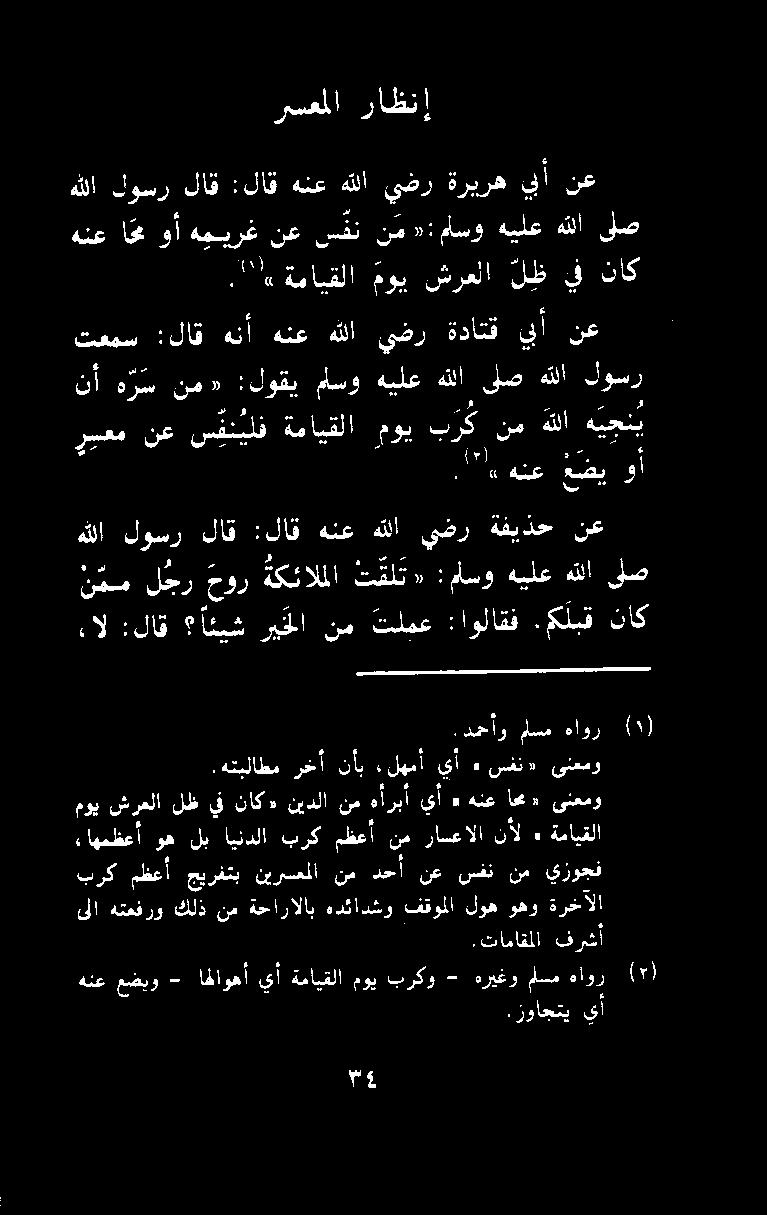 إنظار المعسر
عن أبي هريرة رضي الله عنه قال: قال رسول الله
صلى الله عليه وسلم: «مَن نفّس عن غريمه أو محَا عنه
كان في ظِلّ العرش يومَ القيامة»(١).
عن أبي قتادة رضي الله عنه أنه قال: سمعت
رسول الله صلى الله عليه وسلم يقول: «من سَرّه أن
يُنجيَه اللهَ من كُرَب يومِ القيامة فليُنفِّس عن معسِرٍ
أو يضَعْ عنه»(٢).
عن حذيفة رضي الله عنه قال: قال رسول الله
صلى الله عليه وسلم: «تَلقّتْ الملائكةُ روحَ رجُل ممّنْ
كان قبلَكم. فقالوا: عملتَ من الخَير شيئاً؟ قال: لا،
(١) رواه مسلم وأحمد.
ومعنى «نفس» أي أمهل، بأن أخر مطالبته.
ومعنى «محا عنه» أي أبرأه من الدين «كان في ظل العرش يوم
القيامة» لأن الاعسار من أعظم كرب الدنيا بل هو أعظمها،
فجوزي من نفس عن أحد من المعسرين بتفريج أعظم كرب
الآخرة وهو هول الموقف وشدائده بالاراحة من ذلك ورفعته الى
أشرف المقامات.
(٢) رواه مسلم وغيره - وكرب يوم القيامة أي أهوالها - ويضع عنه
أي يتجاوز.
٣٤